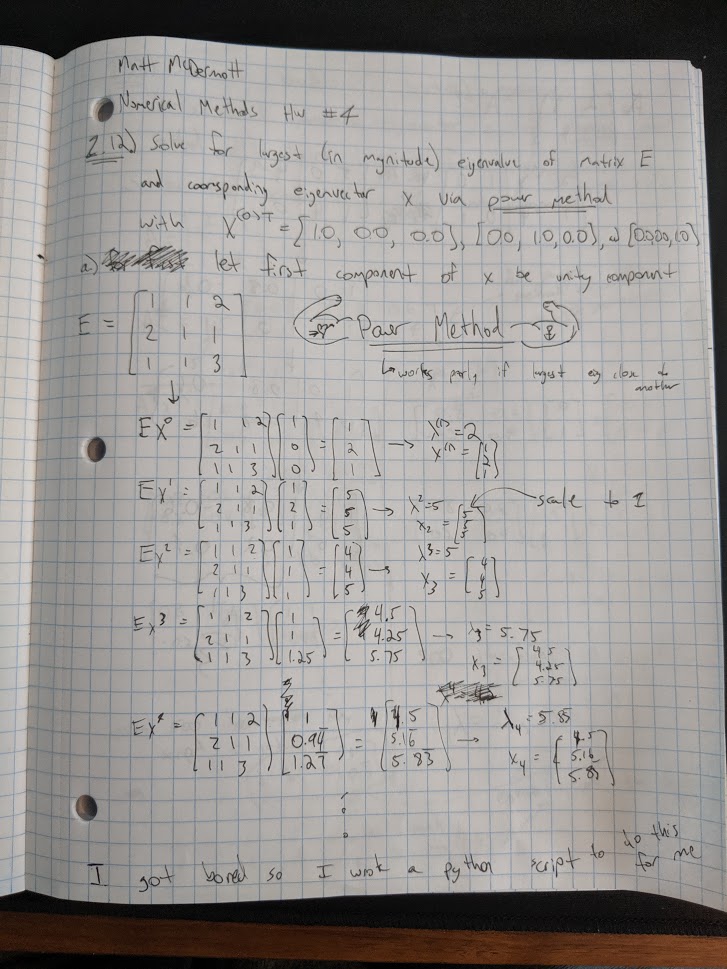 Matt McDermott
Numerical Methods HW #4
2.12) Solve for largest (in mgnitude) eigenvalue of matrix E
and coorsponding eigenvector x via power method
with X^(0)T = [1.0, 0.0, 0.0], [0.0, 1.0, 0.0], [0.0,0.0,1.0]
a) let first component of x be unity component
E = [1 1 2
2 1 1
1 1 3]
Power Method
works if largest eig close to
another
Ex^0 = [1 1 2; 2 1 1; 1 1 3] [1; 0; 0] = [1; 2; 1] → λ^(1) = 2
x^(1) = [1; 2; 1]
Ex^1 = [1 1 2; 2 1 1; 1 1 3] [1; 2; 1] = [5; 5; 5] → λ^2 = 5
x_2 = [5; 5; 5]
scale to 1
Ex^2 = [1 1 2; 2 1 1; 1 1 3] [1; 1; 1] = [4; 4; 5] → λ^3 = 5
x_3 = [4; 4; 5]
Ex^3 = [1 1 2; 2 1 1; 1 1 3] [1; 1; 1.25] = [4.5; 4.25; 5.75] → λ_3 = 5.75
x_3 = [4.5; 4.25; 5.75]
Ex^4 = [1 1 2; 2 1 1; 1 1 3] [1; 0.94; 1.27] = [4.5; 5.16; 5.83] → λ_4 = 5.83
x_4 = [4.5; 5.16; 5.83]
I got bored so I wrote a python script to do this
for me